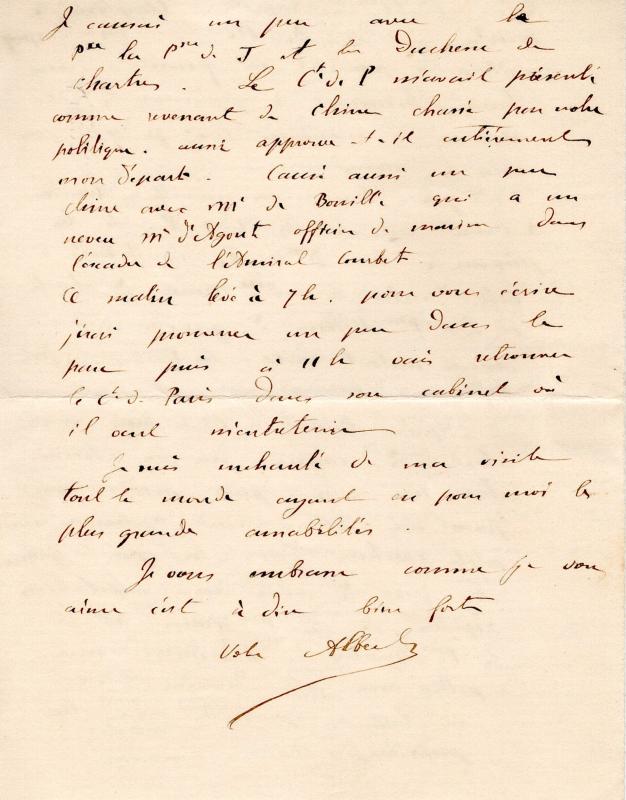 Je causais un peu avec la
Pse la Psse de J et la Duchesse de
Chartres. Le Cte de P m'avait présenté
comme revenant de Chine chassé par notre
politique. aussi approuve-t-il entièrement
mon départ. Causé aussi un peu
Chine avec Mr de Bouillé qui a un
neveu Mr d'Agout officier de marine dans
l'escadre de l'Amiral Courbet.
Ce matin levé à 7h. pour vous écrire
j'irai promener un peu dans le
parc puis à 11h vais retrouver
le Cte de Paris dans son cabinet où
il veut m'entretenir
Je suis enchanté de ma visite
tout le monde ayant eu pour moi les
plus grandes amabilités.
Je vous embrasse comme je vous
aime c'est à dire bien fort
Votre Albert